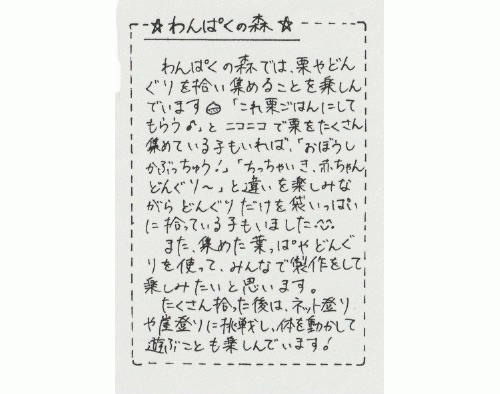 ☆わんぱくの森☆
わんぱくの森では、栗やどん
ぐりを拾い集めることを楽しん
でいます🌰「これ栗ごはんにして
もらう♪」とニコニコで栗をたくさん
集めている子もいれば、「おぼうし
かぶっちゅう!」「ちっちゃいき、赤ちゃん
どんぐり〜」と違いを楽しみな
がらどんぐりだけを袋いっぱい
に拾っている子もいました^^
また、集めた葉っぱやどんぐ
りを使って、みんなで製作をして
楽しみたいと思います。
たくさん拾った後は、ネット登り
や崖登りに挑戦し、体を動かして
遊ぶことも楽しんでいます!